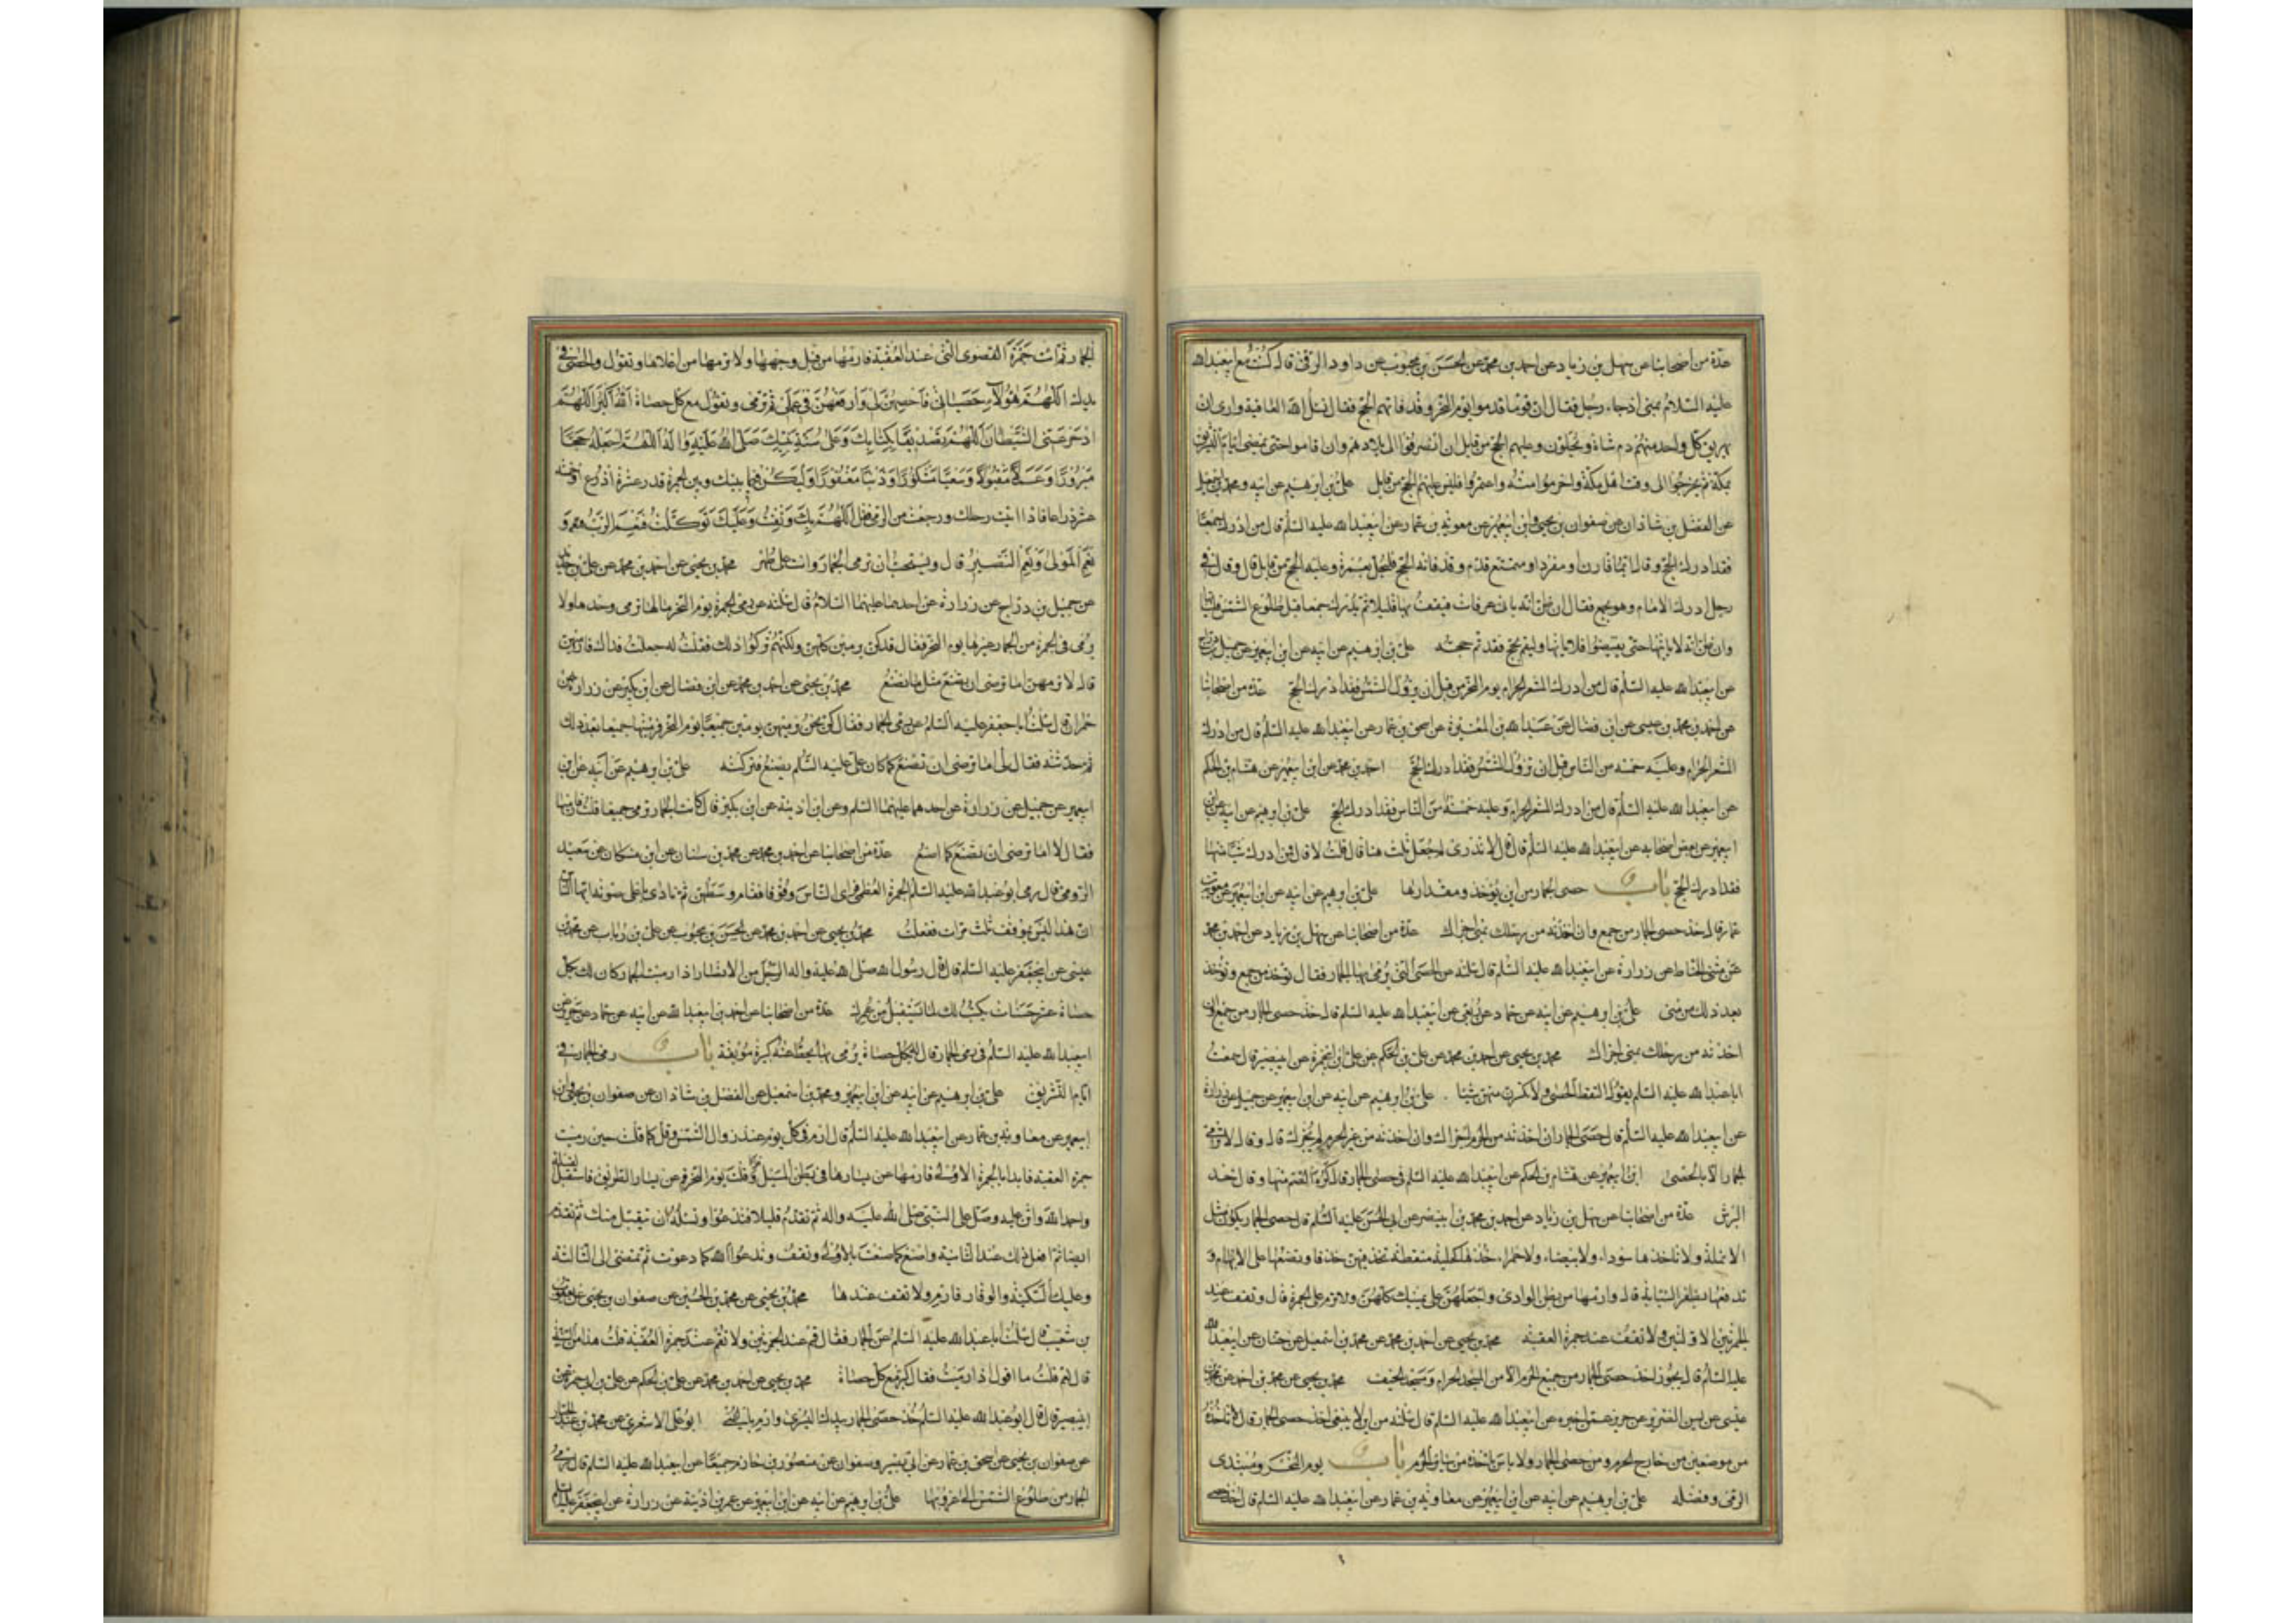 عدة من اصحابنا عن سهل بن زياد عن احمد بن محمد عن الحسن بن محبوب عن داود الرقي قال كنت مع ابيعبدالله
عليه السلام بمنى اذ جاء رجل فقال ان قوما قدموا يوم النحر وقد فاتهم الحج فقال نسئل الله العافية وارى ان
يهريق كل واحد منهم دم شاة ويحلون وعليهم الحج من قابل ان انصرفوا الى بلادهم وان اقاموا حتى يمضى ايام التشريق
بمكة ثم يخرجوا الى وقت اهل مكة واحرموا منه واعتمروا فليس عليهم الحج من قابل علي بن ابرهيم عن ابيه ومحمد بن اسمعيل
عن الفضل بن شاذان عن صفوان بن يحيى وابن ابيعمير عن معوية بن عمار عن ابيعبدالله عليه السلم قال من ادرك جمعا
فقد ادرك الحج وقال ايما قارن او مفرد او متمتع قدم وقد فاته الحج فليحل بعمرة وعليه الحج من قابل قال وقال في
رجل ادرك الامام وهو بجمع فقال ان ظن انه ياتي عرفات فيقف بها قليلا ثم يدرك جمعا قبل طلوع الشمس فلياتها
وان ظن انه لا ياتيها حتى يفيضوا فلا ياتها وليقم بجمع فقد تم حجه علي بن ابرهيم عن ابيه عن ابن ابيعمير عن جميل بن دراج
عن ابيعبدالله عليه السلم قال من ادرك المشعر الحرام يوم النحر من قبل ان يزول الشمس فقد ادرك الحج عدة من اصحابنا
عن احمد بن محمد بن عيسى عن ابن فضال عن عبدالله بن المغيرة عن اسحق بن عمار عن ابيعبدالله عليه السلم قال من ادرك
المشعر الحرام وعليه خمسة من الناس قبل ان تزول الشمس فقد ادرك الحج احمد بن محمد عن ابن ابيعمير عن هشام بن الحكم
عن ابيعبدالله عليه السلم قال من ادرك المشعر الحرام وعليه خمسة من الناس فقد ادرك الحج علي بن ابرهيم عن ابيه عن ابن
ابيعمير عن بعض اصحابه عن ابيعبدالله عليه السلم قال قال لا تدرى لم جعل ثلث هنا قال قلت لا قال فمن ادرك شيئا منها
فقد ادرك الحج باب حصى الجمار من اين يؤخذ ومقدارها علي بن ابرهيم عن ابيه عن ابن ابيعمير عن معوية بن
عمار قال خذ حصى الجمار من جمع وان اخذته من رحلك بمنى اجزاك عدة من اصحابنا عن سهل بن زياد عن احمد بن محمد
عن مثنى الحناط عن زرارة عن ابيعبدالله عليه السلم قال سئلته عن الحصى التي يرمى بها الجمار فقال توخذ من جمع وتؤخذ
بعد ذلك من منى علي بن ابرهيم عن ابيه عن حماد عن ربعي عن ابيعبدالله عليه السلم قال خذ حصى الجمار من جمع وان
اخذته من رحلك بمنى اجزاك محمد بن يحيى عن احمد بن محمد عن علي بن الحكم عن علي بن ابيحمزة عن ابيبصير قال سمعت
اباعبدالله عليه السلم يقول التقط الحصى ولا تكسرن منهن شيئا علي بن ابرهيم عن ابيه عن ابن ابيعمير عن جميل عن زرارة
عن ابيعبدالله عليه السلم قال حصى الجمار ان اخذته من الحرم اجزاك وان اخذته من غير الحرم لم يجزك قال وقال لا ترمى
الجمار الا بالحصى ابن ابيعمير عن هشام بن الحكم عن ابيعبدالله عليه السلم في حصى الجمار قال كره الصم منها وقال خذ
البرش عدة من اصحابنا عن سهل بن زياد عن احمد بن محمد بن ابينصر عن ابي الحسن عليه السلم قال حصى الجمار يكون مثل
الانملة ولا تاخذها سوداء ولا بيضاء ولا حمراء خذها كحلية منقطة تخذفهن خذفا وتضعها على الابهام و
تدفعها بظفر السبابة قال وارمها من بطن الوادى واجعلهن على يمينك كلهن ولا ترم على الجمرة قال وتقف عند
الجمرتين الاوليين ولا تقف عند جمرة العقبة محمد بن يحيى عن احمد بن محمد عن محمد بن اسمعيل عن حنان عن ابيعبدالله
عليه السلم قال يجوز اخذ حصى الجمار من جميع الحرم الا من المسجد الحرام ومسجد الخيف محمد بن يحيى عن محمد بن احمد عن محمد بن
عيسى عن يسين الضرير عن حريز عمن اخبره عن ابيعبدالله عليه السلم قال سئلته من اين ينبغي اخذ حصى الجمار قال لا تاخذه
من موضعين من خارج الحرم ومن حصى الجمار ولا باس باخذه من ساير الحرم باب يوم النحر ومبتدى
الرمى وفضله علي بن ابرهيم عن ابيه عن ابن ابيعمير عن معاوية بن عمار عن ابيعبدالله عليه السلم قال خذ حصى
الجمار ثم ائت جمرة القصوى التي عند العقبة فارمها من قبل وجهها ولا ترمها من اعلاها وتقول والحصى في
يديك اللهم هؤلاء حصياتي فاحصهن لي وارفعهن في عملى ثم ترمى وتقول مع كل حصاة الله اكبر اللهم
ادحر عني الشيطان اللهم تصديقا بكتابك وعلى سنة نبيك صلى الله عليه واله اللهم اجعله حجا
مبرورا وعملا مقبولا وسعيا مشكورا وذنبا مغفورا وليكن فيما بينك وبين الجمرة قدر عشرة اذرع او خمسة
عشر ذراعا فاذا اتيت رحلك ورجعت من الرمى فقل اللهم بك وثقت وعليك توكلت فنعم الرب و
نعم المولى ونعم النصير قال ويستحب ان ترمى الجمار وانت على طهر محمد بن يحيى عن احمد بن محمد عن علي بن حديد
عن جميل بن دراج عن زرارة عن احدهما عليهما السلام قال سئلته عن رمى الجمرة يوم النحر مالها ترمى وحدها ولا
يرمى في الجمرة من الجمار غيرها يوم النحر فقال قد كن يرمين كلهن ولكنهم تركوا ذلك فقلت له جعلت فداك فارميهن
قال لا ترمهن اما ترضى ان تصنع مثل ما نصنع محمد بن يحيى عن احمد بن محمد عن ابن فضال عن ابن بكير عن زرارة عن
حمران قال سئلت اباجعفر عليه السلم عن رمى الجمار فقال كن يرمين جميعا يوم النحر فرميتها جميعا بعد ذلك
ثم حدثته فقال لي اما ترضى ان تصنع كما كان علي عليه السلم يصنع فتركته علي بن ابرهيم عن ابيه عن ابن
ابيعمير عن جميل عن زرارة عن احدهما عليهما السلم وعن ابن اذينة عن ابن بكير قال كانت الجمار ترمى جميعا قلت فارميها
فقال لا اما ترضى ان تصنع كما اصنع عدة من اصحابنا عن احمد بن محمد عن محمد بن سنان عن ابن مسكان عن سعيد
الرومى قال رمى ابوعبدالله عليه السلم الجمرة العظمى فراى الناس وقوفا فقام وسطهن ثم نادى باعلى صوته ايها الناس
ان هذا ليس بموقف ثلث مرات ففعلت محمد بن يحيى عن احمد بن محمد عن الحسن بن محبوب عن علي بن رئاب عن محمد بن
عيسى عن ابيجعفر عليه السلم قال قال رسول الله صلى الله عليه واله لرجل من الانصار اذا رميت الجمار كان لك بكل
حصاة عشر حسنات يكتب لك لما تستقبل من عمرك عدة من اصحابنا عن احمد بن ابيعبدالله عن ابيه عن حماد عن حريز عن
ابيعبدالله عليه السلم في رمى الجمار قال له بكل حصاة يرمى بها يحط عنه كبيرة موبقة باب رمى الجمار في
ايام التشريق علي بن ابرهيم عن ابيه عن ابن ابيعمير ومحمد بن اسمعيل عن الفضل بن شاذان عن صفوان بن يحيى وابن
ابيعمير عن معاوية بن عمار عن ابيعبدالله عليه السلم قال ارم في كل يوم عند زوال الشمس وقل كما قلت حين رميت
جمرة العقبة فابدا بالجمرة الاولى فارمها عن يسارها في بطن المسيل وقل كما قلت يوم النحر قم عن يسار الطريق فاستقبل القبلة
واحمد الله واثن عليه وصل على النبي صلى الله عليه واله ثم تقدم قليلا فتدعوا وتسئله ان يتقبل منك ثم تقدم
ايضا ثم افعل ذلك عند الثانية واصنع كما صنعت بالاولى وتقف وتدعوا الله كما دعوت ثم تمضى الى الثالثة
وعليك السكينة والوقار فارم ولا تقف عندها محمد بن يحيى عن محمد بن الحسين عن صفوان بن يحيى عن يعقوب
بن شعيب قال سئلت اباعبدالله عليه السلم عن الجمار فقال قم عند الجمرتين ولا تقم عند جمرة العقبة قلت هذا من السنة
قال نعم قلت ما اقول اذا رميت فقال كبر مع كل حصاة محمد بن يحيى عن احمد بن محمد عن علي بن الحكم عن علي بن ابيحمزة عن
ابيبصير قال قال ابوعبدالله عليه السلم خذ حصى الجمار بيدك اليسرى وارم باليمنى ابوعلي الاشعري عن محمد بن عبدالجبار
عن صفوان بن يحيى عن اسحق بن عمار عن ابي بصير وصفوان عن منصور بن حازم جميعا عن ابيعبدالله عليه السلم قال رمى
الجمار من طلوع الشمس الى غروبها علي بن ابرهيم عن ابيه عن ابن ابيعمير عن عمر بن اذينة عن زرارة عن ابيجعفر عليه السلم